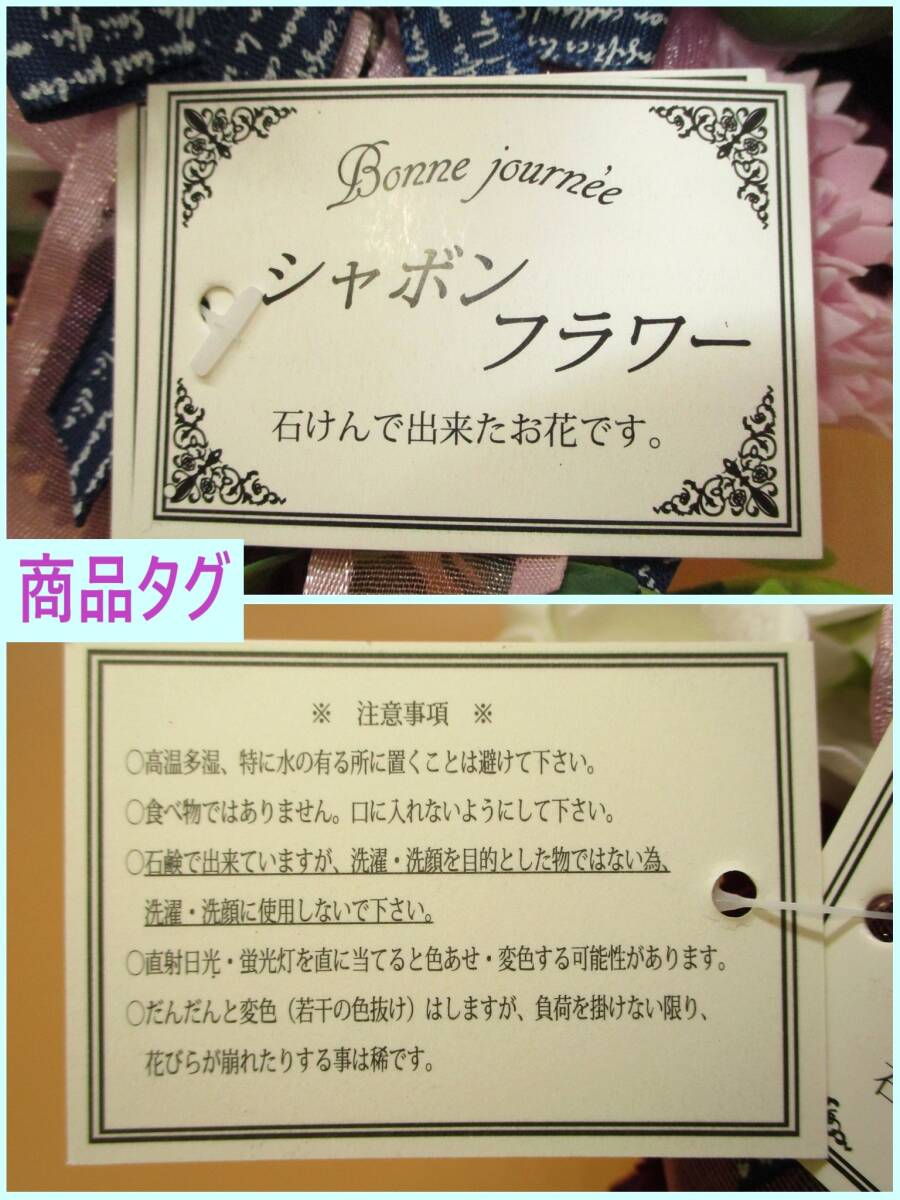 Bonne journée
シャボン
フラワー
石けんで出来たお花です。
商品タグ
※ 注意事項 ※
○高温多湿、特に水の有る所に置くことは避けて下さい。
○食べ物ではありません。口に入れないようにして下さい。
○石鹸で出来ていますが、洗濯・洗顔を目的とした物ではない為、
洗濯・洗顔に使用しないで下さい。
○直射日光・蛍光灯を直に当てると色あせ・変色する可能性があります。
○だんだんと変色（若干の色抜け）はしますが、負荷を掛けない限り、
花びらが崩れたりする事は稀です。